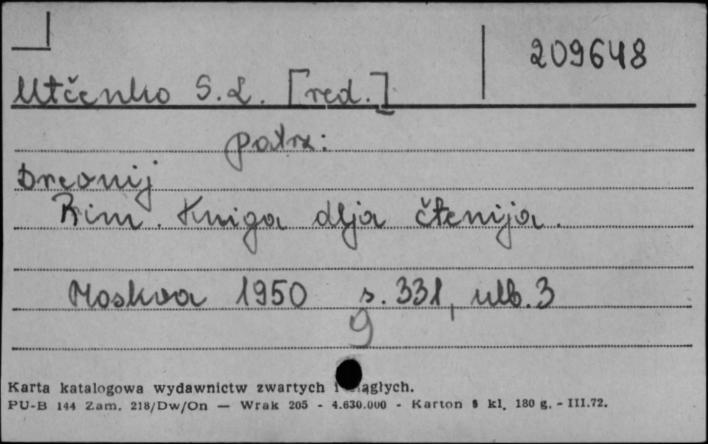 209648
Utčenko S.L. [red.]
patrz:
Drevnij
Rim. Kniga dlja čtenija.
Moskva 1950 s. 331, nlb. 3
9
Karta katalogowa wydawnictw zwartych i ciągłych.
PU-B 144 Zam. 218/Dw/On — Wrak 205 - 4.630.000 - Karton 8 kl. 180 g. - III.72.